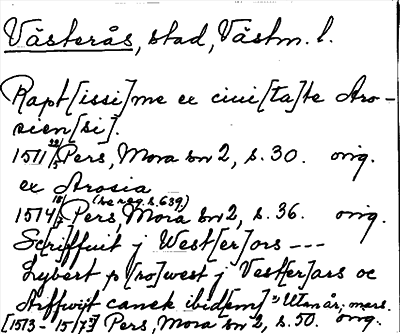 Västerås, stad, Västm. l.
Rapt[issi]me ex ciui[ta]te Aro-
sien[si].
1511 22/3 Pers, Mora sn 2, s. 30. orig.
ex Arosia
(se reg. s. 639)
1514 18/ Pers, Mora sn 2, s. 36. orig.
Sc[ri]ffuit j West[er]ors ---
Lybert p[ro]west j Vest[er]ars oc
Aiffwijt canek ibid[em] Utan år; mars.
[1513 - 15/7] Pers, Mora sn 2, s. 50. orig.